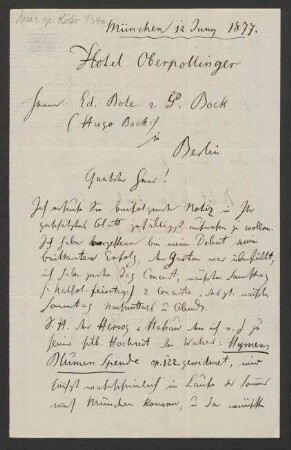 München 12 Juny 1877.
Hotel Oberpollinger
Ed. Bote & G. Bock
(Hugo Bock)
in
Berlin
Geehrter Herr!
Ich ersuche Sie beifolgende Notiz in Ihr
geschätztes Blatt gefälligst aufnehmen zu wollen.
Ich habe bei meinem Debut einen
Erfolg, der Garten war überfüllt,
ich habe Concert, nächsten Samstag
2 Concerte,
Sonntag Nachmittag & Abends.
S. H. der Herzog v Nassau dem ich z. J. zu
seiner silb. Hochzeit den Walzer: Hymens
Blumen Spende op. 122 gewidmet, wird
wahrscheinlich im Laufe des
nach München kommen, u da